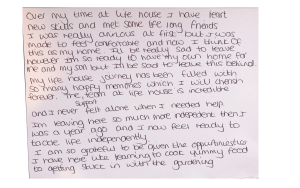 Over my time at life house I have learnt
new skills and met some life long friends
I was really anxious at first but I was
made to feel comfortable and now I think of
this as my home I'll be really sad to leave
however I am so ready to have my own home for
me and my son but I'll be sad to leave this behind.
My life house journey has been filled with
so many happy memories which I will cherish
forever the team at life house is incredible
support
and I never felt alone when I needed help
I'm leaving here so much more independent then I
was a year ago and I now feel ready to
tackle life independently
I am so grateful to be given the opportunities
I have here like learning to cook yummy food
to getting stuck in with the gardening